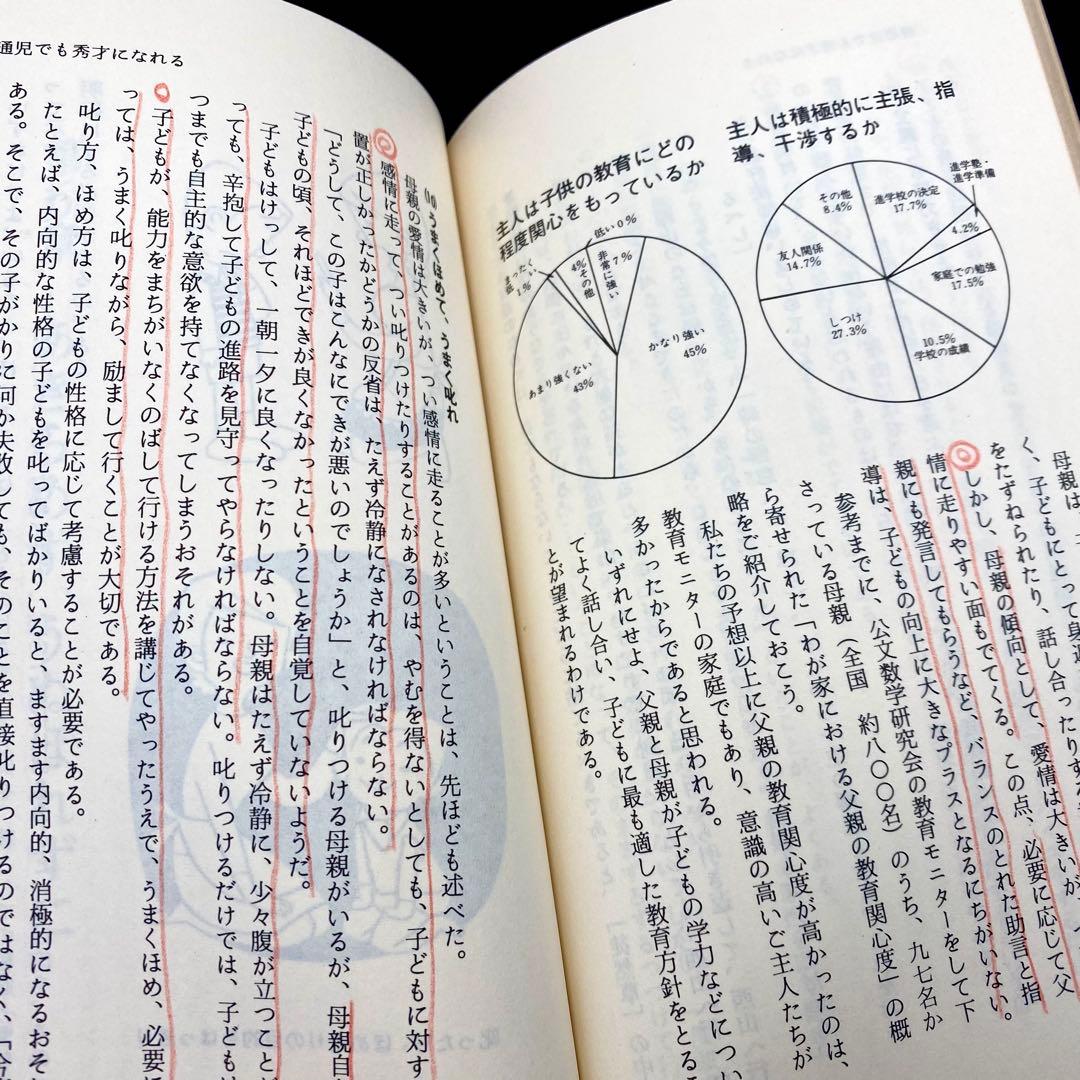 主人は積極的に主張、指
導、干渉するか
進学塾・
進学準備
4.2%
進学校の決定
17.7%
その他
8.4%
友人関係
14.7%
家庭での勉強
17.5%
しつけ
27.3%
10.5%
学校の成績
主人は子供の教育にどの
程度関心をもっているか
低い0%
非常に強い
7%
4%
その他
まったく
弱い
1%
かなり強い
45%
あまり強くない
43%
母親は
く、子どもにとって身近
をたずねられたり、話し合ったりする
しかし、母親の傾向として、愛情は大きいが、つ
情に走りやすい面もでてくる。この点、必要に応じて父
親にも発言してもらうなど、バランスのとれた助言と指
導は、子どもの向上に大きなプラスとなるにちがいない。
参考までに、公文数学研究会の教育モニターをして下
さっている母親（全国　約八〇〇名）のうち、九七名か
ら寄せられた「わが家における父親の教育関心度」の概
略をご紹介しておこう。
私たちの予想以上に父親の教育関心度が高かったのは、
教育モニターの家庭でもあり、意識の高いご主人たちが
多かったからであると思われる。
いずれにせよ、父親と母親が子どもの学力などについ
てよく話し合い、子どもに最も適した教育方針をとるこ
とが望まれるわけである。
通児でも秀才になれる
(10)うまくほめて、うまく叱れ
母親の愛情は大きいが、つい感情に走ることが多いということは、先ほども述べた。
感情に走って、つい叱りつけたりすることがあるのは、やむを得ないとしても、子どもに対す
置が正しかったかどうかの反省は、たえず冷静になされなければならない。
「どうして、この子はこんなにできが悪いのでしょうか」と、叱りつける母親がいるが、母親自
子どもの頃、それほどできが良くなかったということを自覚していないようだ。
子どもはけっして、一朝一夕に良くなったりしない。母親はたえず冷静に、少々腹が立つことが
っても、辛抱して子どもの進路を見守ってやらなければならない。叱りつけるだけでは、子どもは
つまでも自主的な意欲を持てなくなってしまうおそれがある。
子どもが、能力をまちがいなくのばして行ける方法を講じてやったうえで、うまくほめ、必要に
っては、うまく叱りながら、励まして行くことが大切である。
叱り方、ほめ方は、子どもの性格に応じて考慮することが必要である。
たとえば、内向的な性格の子どもを叱ってばかりいると、ますます内向的、消極的になるおそれ
ある。そこで、その子がかりに何か失敗しても、そのことを直接叱りつけるのではなく、「今